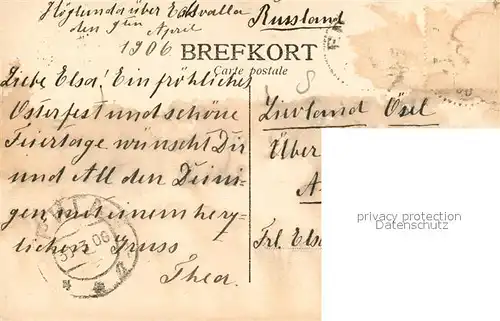 Höglunda über Edsvalla
den 9ten April
1906
Russland
BREFKORT
Carte postale
Liebe Elsa! Ein fröhliches
Osterfest und schöne
Feiertage wünscht Dir
und All den Deini-
gen, mit einem herz-
lichen Gruss
Thea.
Livland Ösel
Über
A
Frl. Elsa
privacy protection
watermark